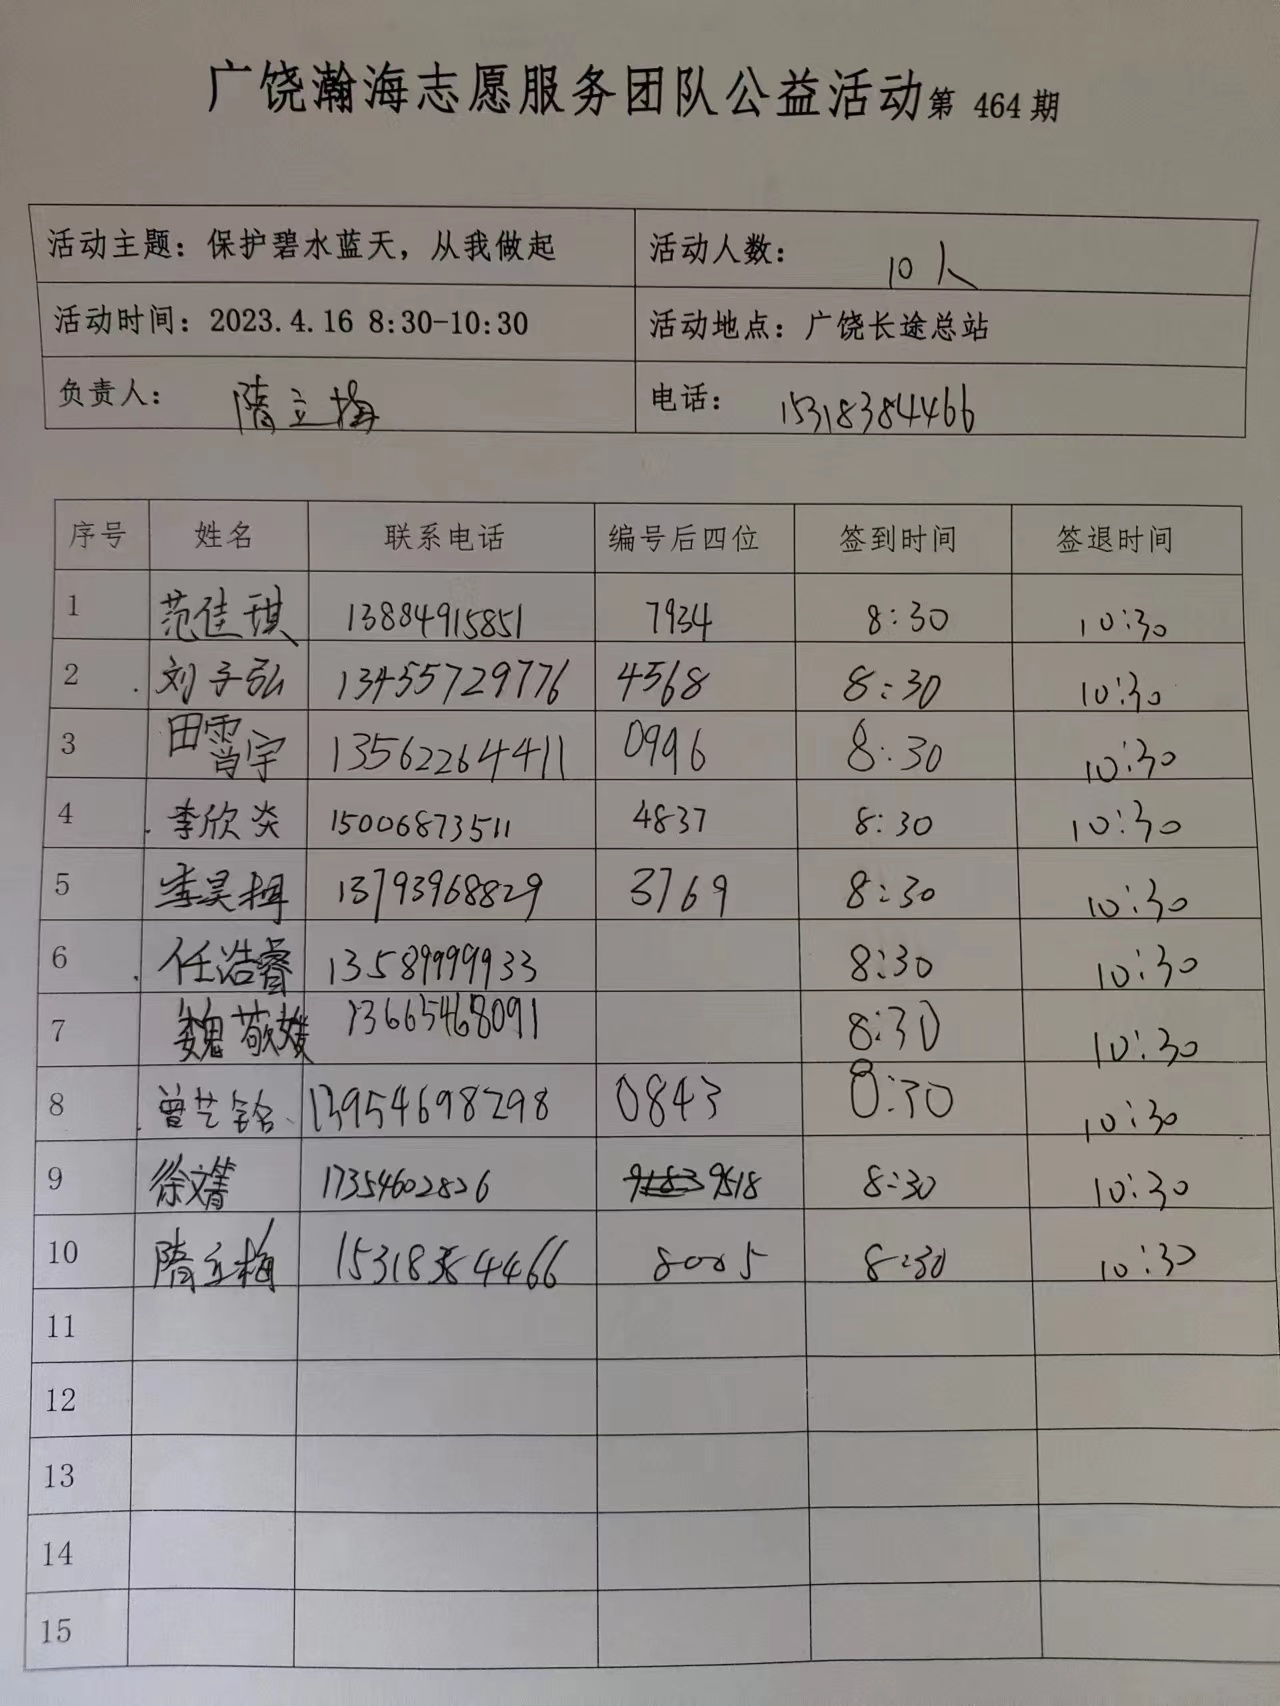 广饶瀚海志愿服务团队公益活动第 464 期
活动主题：保护碧水蓝天，从我做起 活动人数： 10人
活动时间：2023.4.16 8:30-10:30 活动地点：广饶长途总站
负责人： 隋立梅 电话： 15318384466
序号 姓名 联系电话 编号后四位 签到时间 签退时间
1 范佳琪 13884915851 7934 8:30 10:30
2 刘子弘 13455729776 4568 8:30 10:30
3 田霄宇 13562264411 0996 8:30 10:30
4 李欣炎 15006873511 4837 8:30 10:30
5 李昊 13793968829 3769 8:30 10:30
6 任浩睿 13589999933 8:30 10:30
7 魏敬媛 13665468091 8:30 10:30
8 曾艺铭 13954698298 0843 8:30 10:30
9 徐文箐 17354602826 9518 8:30 10:30
10 隋立梅 15318384466 8005 8:30 10:30
11
12
13
14
15